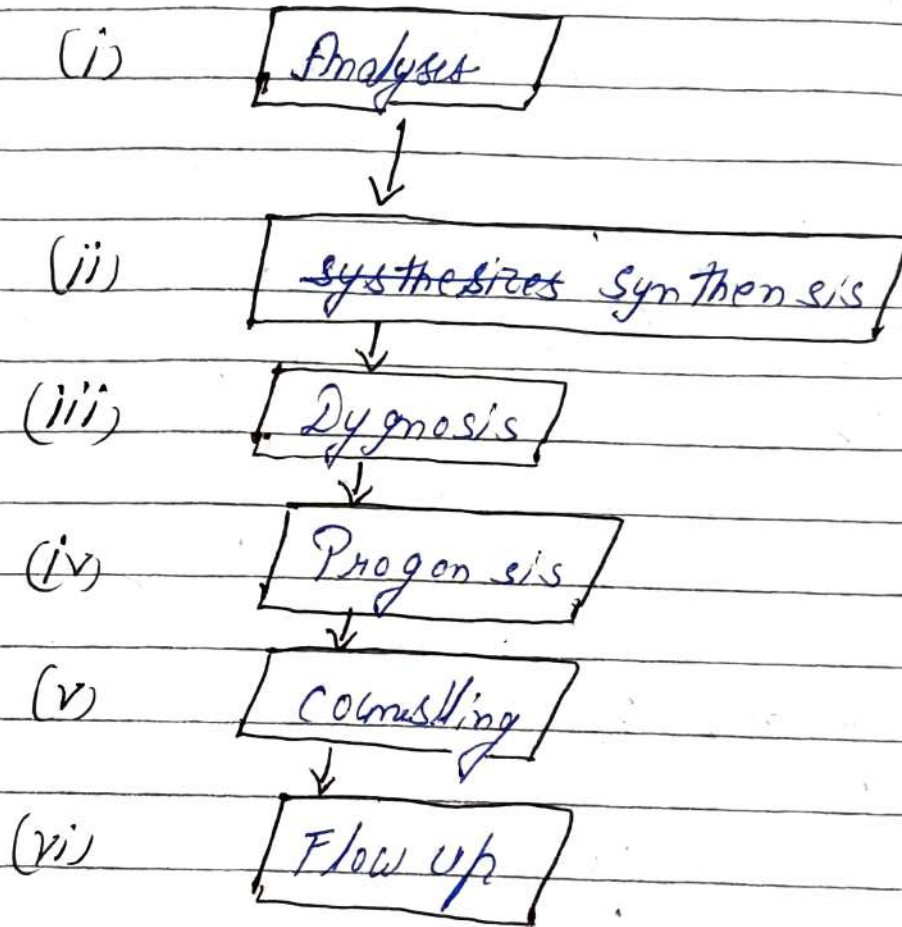 (i) Analyses
(ii) systhesizes Synthensis
(iii) Dygnosis
(iv) Progonsis
(v) counslling
(vi) Flow up